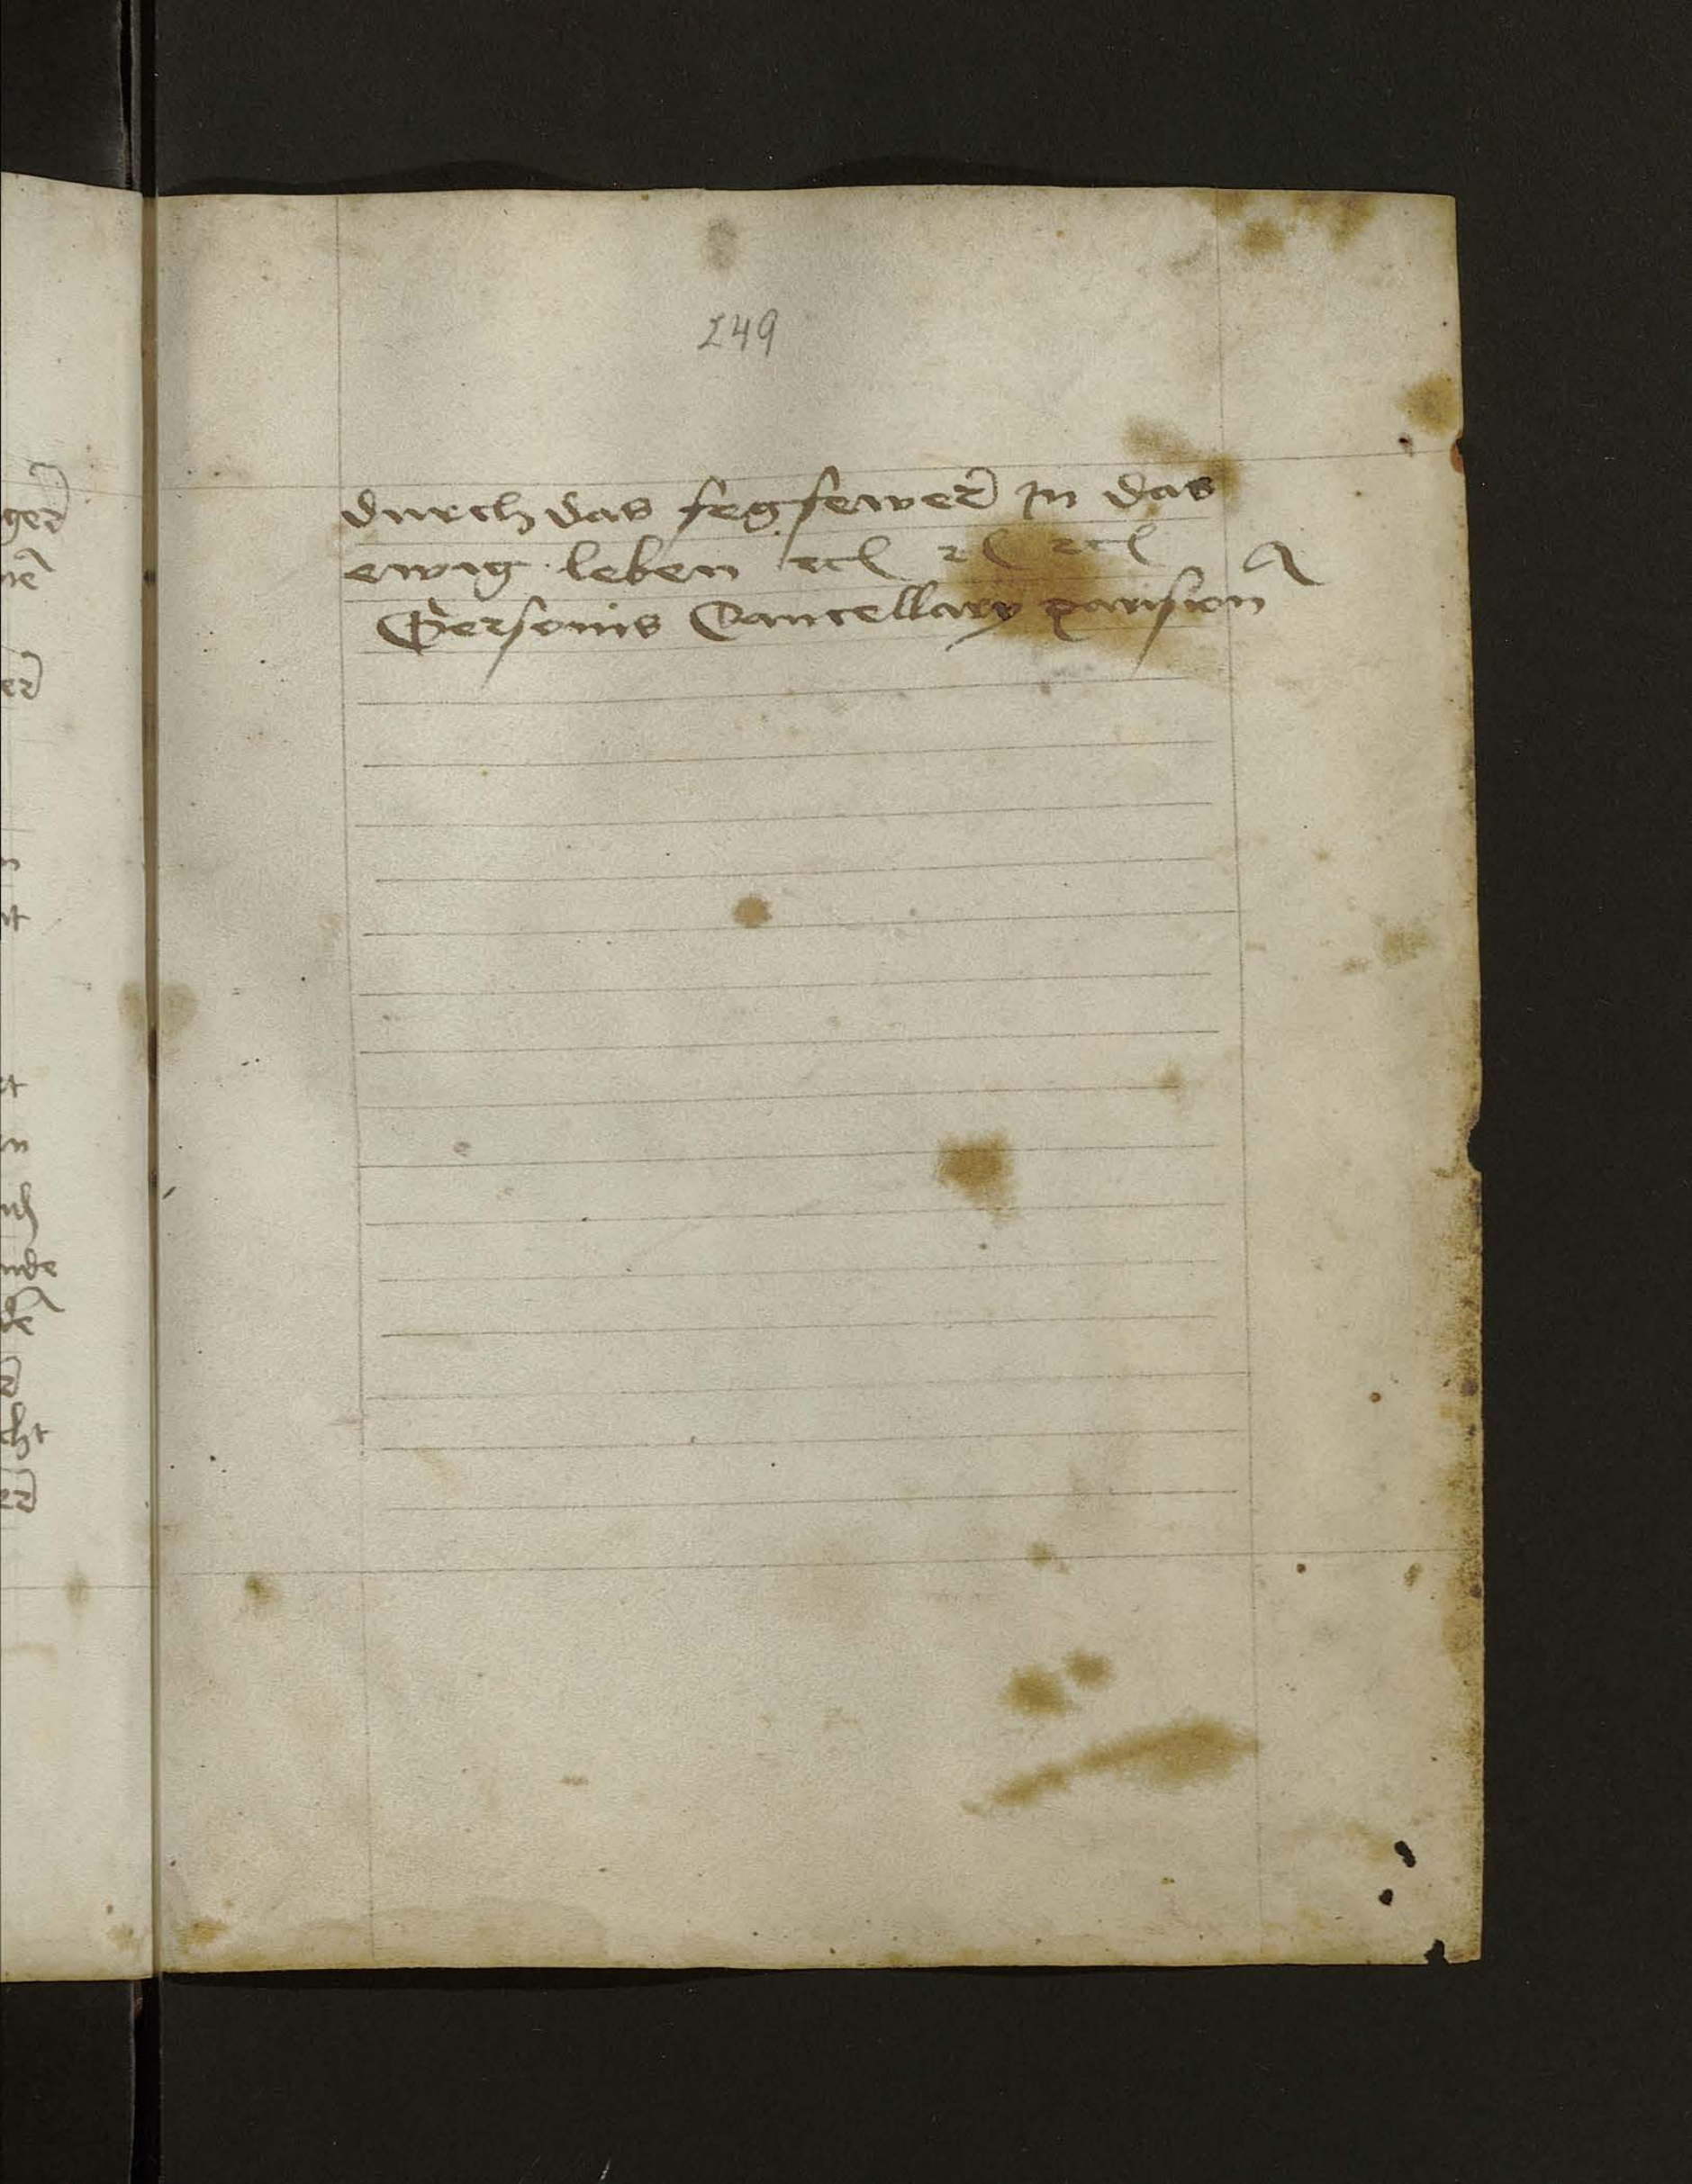 249
durch das fegfewer in das
ewig leben etc etc etc
Gersonis Cancellary parisien